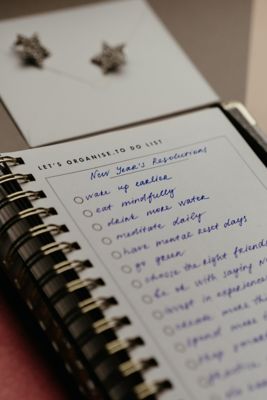 LET'S ORGANISE.TO DO LIST
New Year's Resolutions
wake up earlier
eat mindfully
drink more water
meditate daily
have mental reset days
go green
choose the right friends
be ok with saying No
invest in experience
create more
spend more